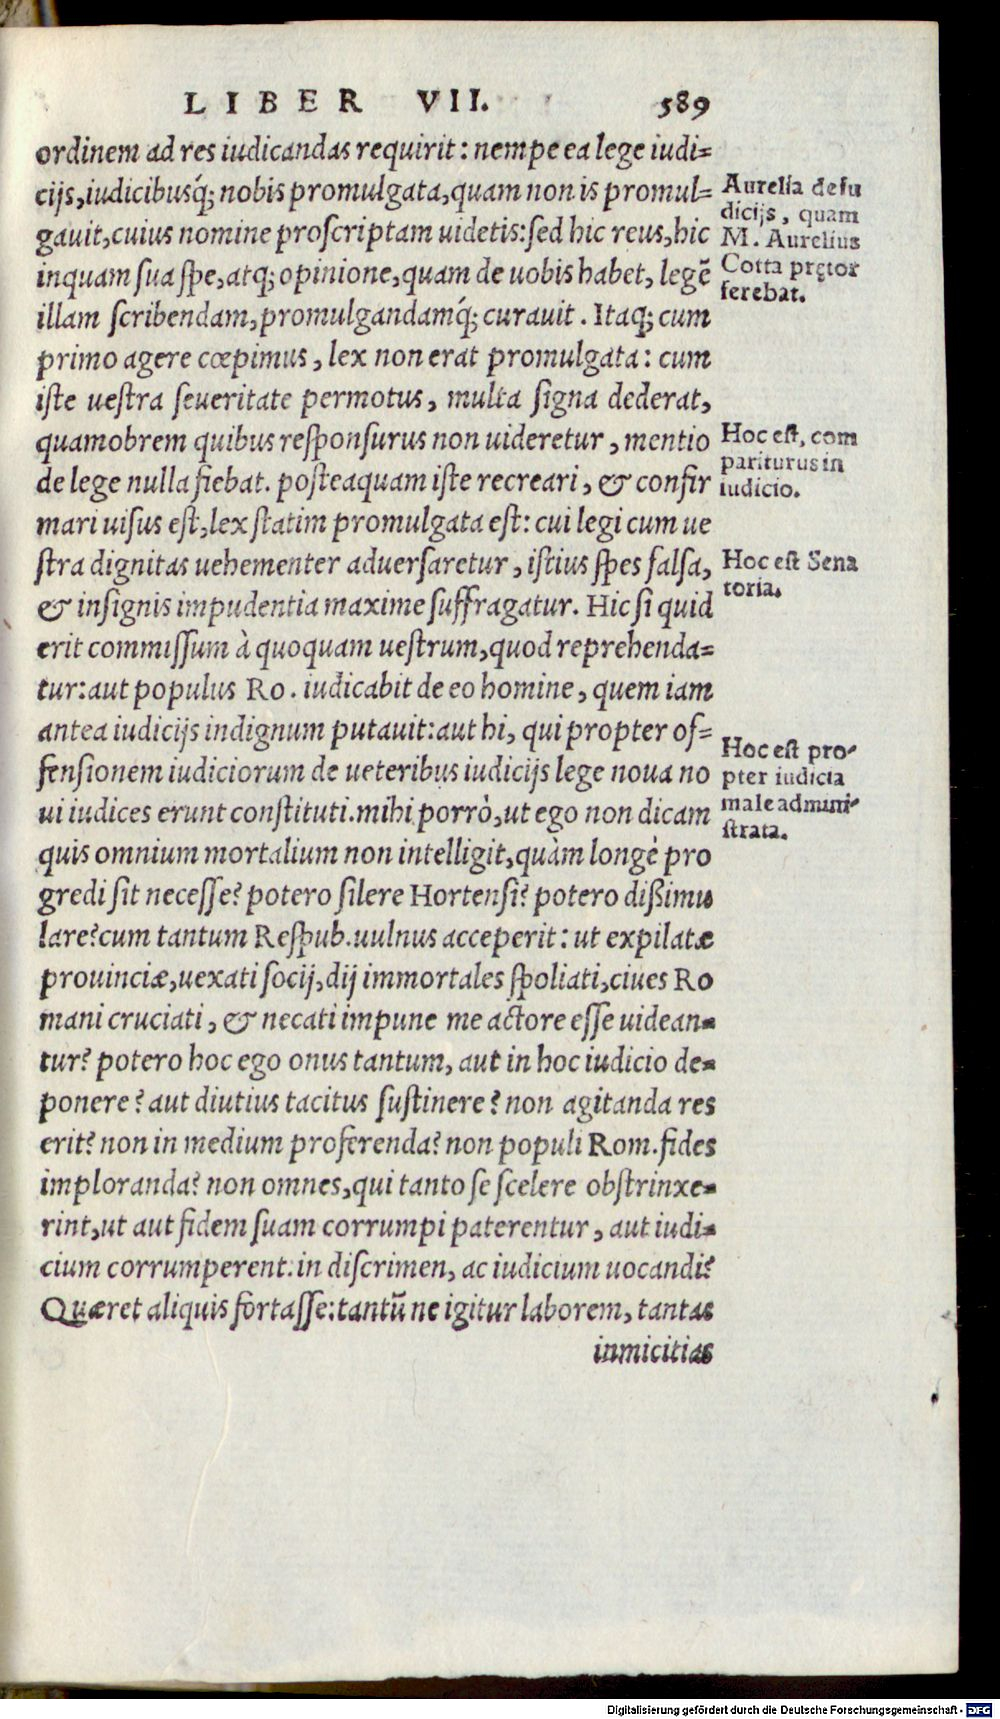 LIBER VII. 589
ordinem ad res iudicandas requirit: nempe ea lege iudi=
cijs, iudicibusq́; nobis promulgata, quam non is promul=
gauit, cuius nomine proscriptam uidetis: sed hic reus, hic
inquam sua spe, atq; opinione, quam de uobis habet, legẽ
illam scribendam, promulgandamq́; curauit. Itaq; cum
primo agere cœpimus, lex non erat promulgata: cum
iste uestra seueritate permotus, multa signa dederat,
quamobrem quibus responsurus non uideretur, mentio
de lege nulla fiebat. posteaquam iste recreari, & confir
mari uisus est, lex statim promulgata est: cui legi cum ue
stra dignitas uehementer aduersaretur, istius spes falsa,
& insignis impudentia maxime suffragatur. Hic si quid
erit commissum à quoquam uestrum, quod reprehenda=
tur: aut populus Ro. iudicabit de eo homine, quem iam
antea iudicijs indignum putauit: aut hi, qui propter of=
fensionem iudiciorum de ueteribus iudicijs lege noua no
ui iudices erunt constituti. mihi porrò, ut ego non dicam
quis omnium mortalium non intelligit, quàm longè pro
gredi sit necesse? potero silere Hortensi? potero dißimu
lare? cum tantum Respub. uulnus acceperit: ut expilatæ
prouinciæ, uexati socij, dij immortales spoliati, ciues Ro
mani cruciati, & necati impune me actore esse uidean=
tur? potero hoc ego onus tantum, aut in hoc iudicio de=
ponere? aut diutius tacitus sustinere? non agitanda res
erit? non in medium proferenda? non populi Rom. fides
imploranda? non omnes, qui tanto se scelere obstrinxe=
rint, ut aut fidem suam corrumpi paterentur, aut iudi=
cium corrumperent. in discrimen, ac iudicium uocandi?
Quæret aliquis fortasse: tantũ ne igitur laborem, tantas
inimicitias
Aurelia de iu
dicijs, quam
M. Aurelius
Cotta prętor
ferebat.
Hoc est, com
pariturus in
iudicio.
Hoc est Sena
toria.
Hoc est pro-
pter iudicia
male admini-
strata.
Digitalisierung gefördert durch die Deutsche Forschungsgemeinschaft - DFG